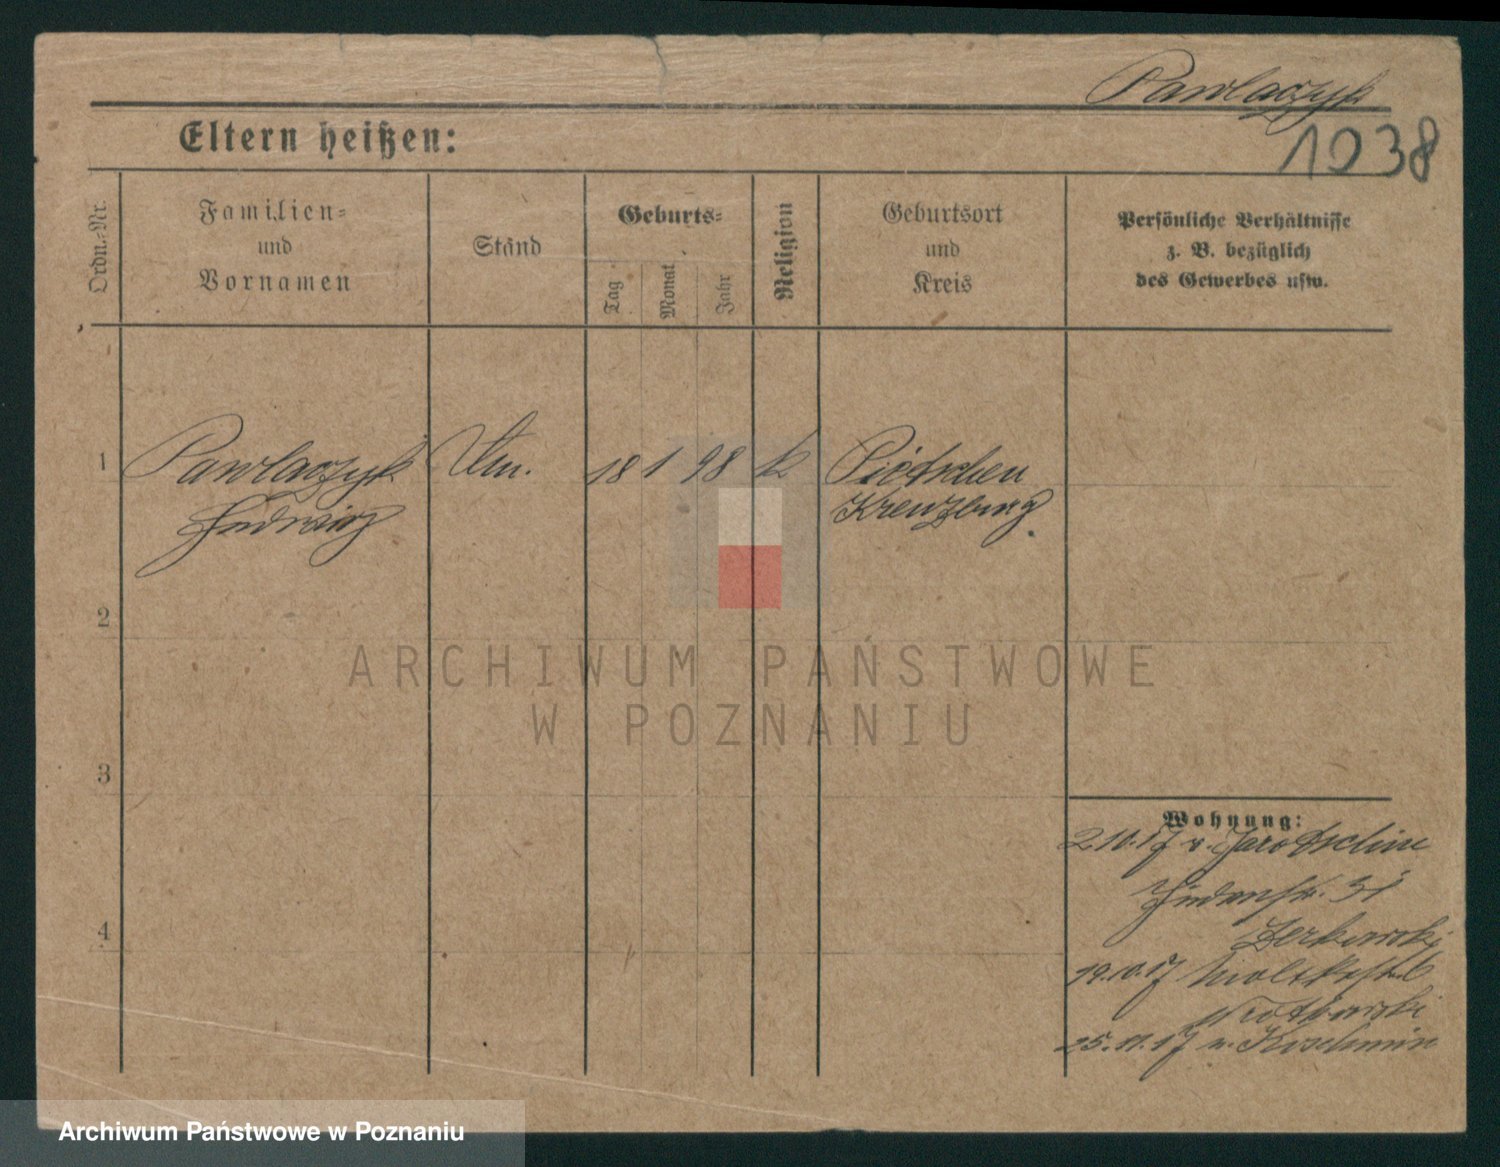 Pawlaczyk
1038
Eltern heißen:
Ordn.-Nr.
Familien-
und
Vornamen
Stand
Geburts-
Tag
Monat
Jahr
Religion
Geburtsort
und
Kreis
Persönliche Verhältnisse
z. B. bezüglich
des Gewerbes usw.
1
Pawlaczyk
Hedwig
18 1 98 k
Pitschen
Kreuzburg
2
3
4
Wohnung:
2.10.17 v. Jarotschin
Judenstr. 31
Zerkowski
19.10.17 Moltkestr. 6
25.11.17 n. Koschmin
ARCHIWUM PAŃSTWOWE
W POZNANIU
Archiwum Państwowe w Poznaniu